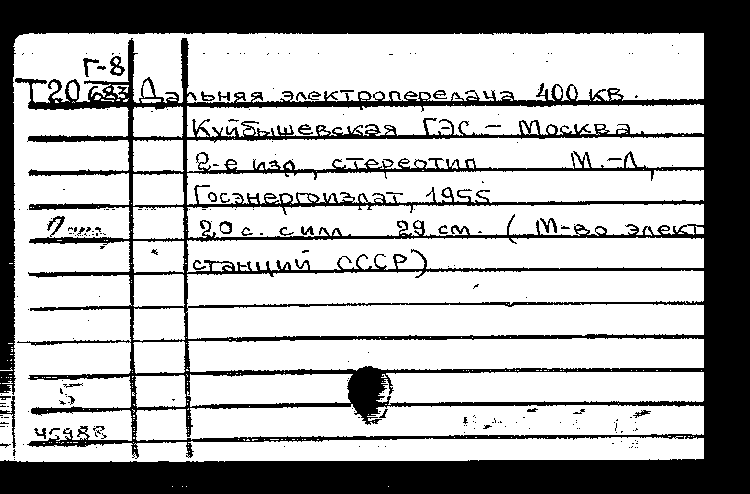 Г-8
Т20 683 Дальняя электропередача 400 кв.
Куйбышевская ГЭС - Москва.
2-е изд., стереотип. М.-Л.,
Госэнергоиздат, 1955
20 с. с илл. 29 см. (М-во элект
станций СССР)
5
45988